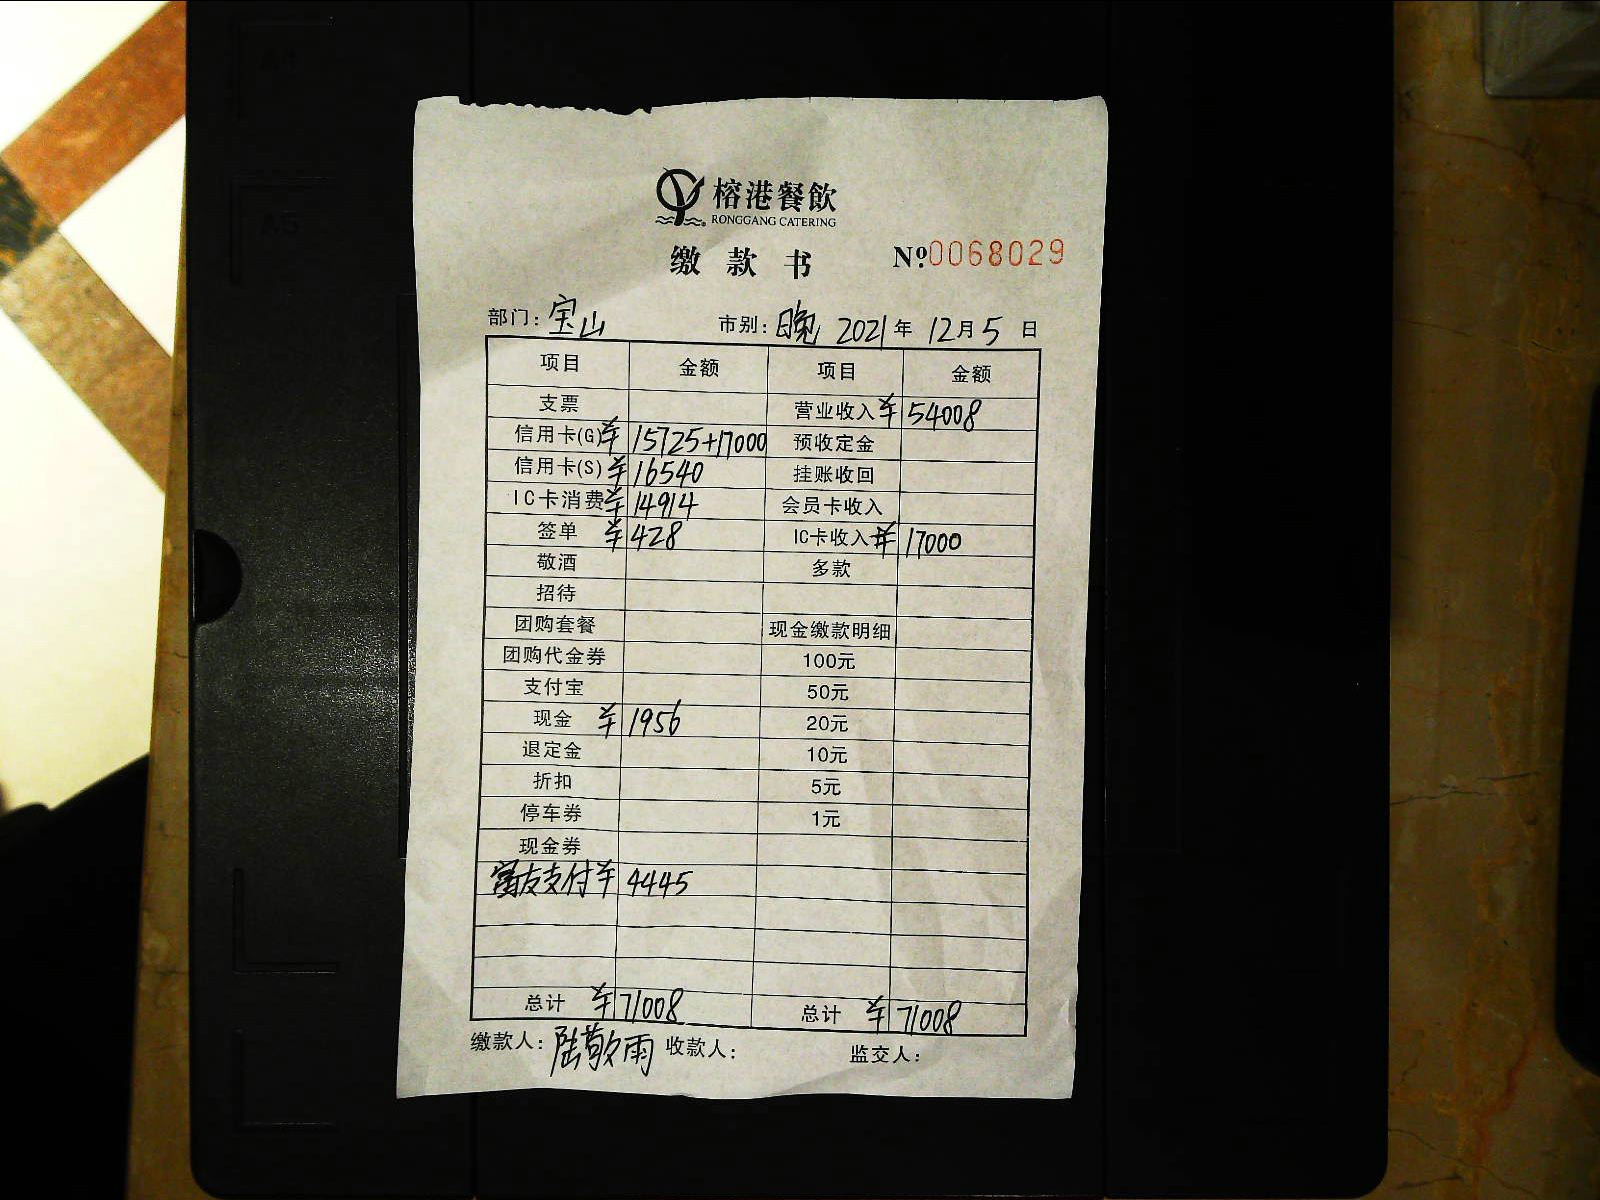 榕港餐飲
RONGGANG CATERING
缴款书 Nº0068029
部门：宝山 市别：晚 2021年12月5日
项目 金额 项目 金额
支票 营业收入 ¥54008
信用卡(G) ¥15725+17000 预收定金
信用卡(S) ¥16540 挂账收回
IC卡消费 ¥14914 会员卡收入
签单 ¥428 IC卡收入 ¥17000
敬酒 多款
招待
团购套餐 现金缴款明细
团购代金券 100元
支付宝 50元
现金 ¥1956 20元
退定金 10元
折扣 5元
停车券 1元
现金券
富友支付 ¥4445
总计 ¥71008 总计 ¥71008
缴款人：陆敬雨 收款人： 监交人：
A5